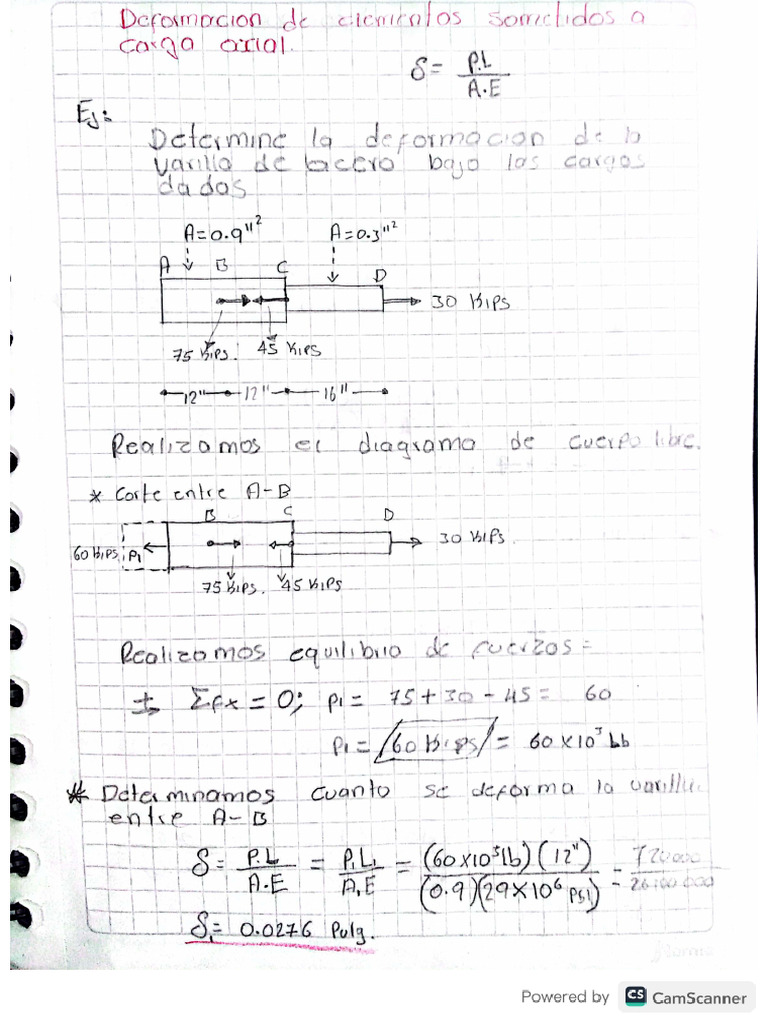 Deformacion de elementos sometidos a
carga axial.
δ = P.L / A.E
Ej:
Determine la deformacion de la
varilla de acero bajo las cargas
dadas
A=0.9"² A=0.3"²
A B C D
30 Kips
75 Kips. 45 Kips
12" 12" 16"
Realizamos el diagrama de cuerpo libre.
* Corte entre A-B
B C D
60 Kips P1 30 Kips.
75 Kips. 45 Kips
Realizamos equilibrio de fuerzas =
± ΣFx = 0; P1 = 75 + 30 - 45 = 60
P1 = /60 Kips/ = 60 x 10³ Lb
* Determinamos cuanto se deforma la varilla
entre A-B
δ = P.L / A.E = P₁L₁ / A₁E = (60x10³ lb)(12") / (0.9)(29x10⁶ Psi) = 720000 / 26100 000
δ₁ = 0.0276 Pulg.
Powered by CS CamScanner